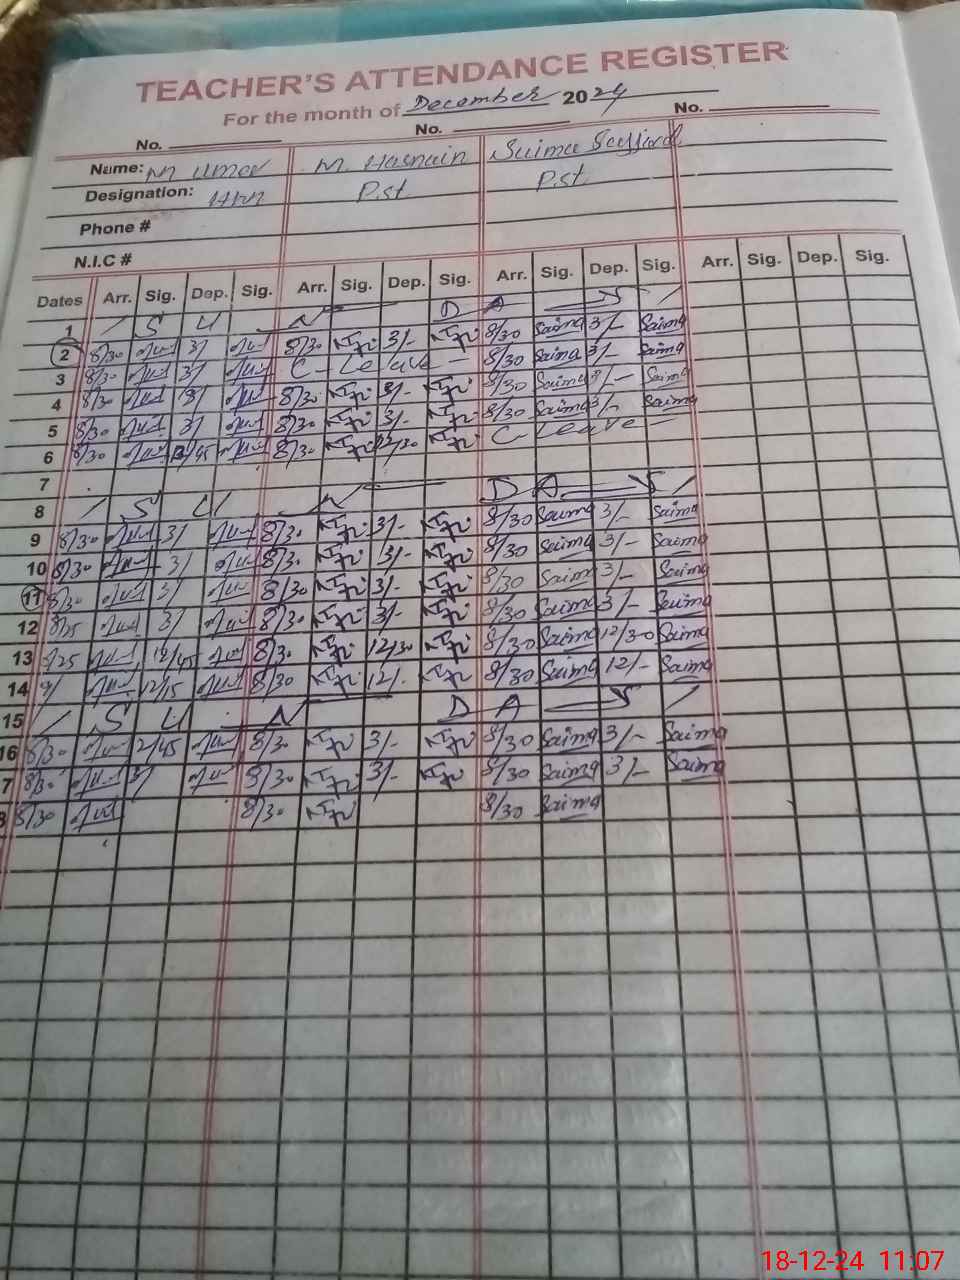 TEACHER'S ATTENDANCE REGISTER
For the month of December 2024
No. No. No.
Name: M Umar M. Hasnain Saima
Designation: P.st P.st
Phone #
N.I.C #
Dates Arr. Sig. Dep. Sig. Arr. Sig. Dep. Sig. Arr. Sig. Dep. Sig. Arr. Sig. Dep. Sig.
1 / S U N D A Y /
2 8/30 3/ 8/30 3/- 8/30 Saima 3/- Saima
3 8/30 3/ C- Leave - 8/30 Saima 3/- Saima
4 8/30 3/ 8/30 3/- 8/30 Saima 3/- Saima
5 8/30 3/ 8/30 3/- 8/30 Saima 3/- Saima
6 8/30 8/30 12/30 C Leave -
7
8 / S U N D A Y /
9 8/30 3/ 8/30 3/- 8/30 Saima 3/- Saima
10 8/30 3/ 8/30 3/- 8/30 Saima 3/- Saima
11 8/30 3/ 8/30 3/- 8/30 Saima 3/- Saima
12 8/25 3/ 8/30 3/- 8/30 Saima 3/- Saima
13 /25 12/45 8/30 12/30 8/30 Saima 12/30 Saima
14 12/15 8/30 12/- 8/30 Saima 12/- Saima
15 / S U N D A Y /
16 8/30 2/45 8/30 3/- 8/30 Saima 3/- Saima
7 8/30 3/ 8/30 3/- 8/30 Saima 3/- Saima
8/30 8/30 8/30 Saima
18-12-24 11:07